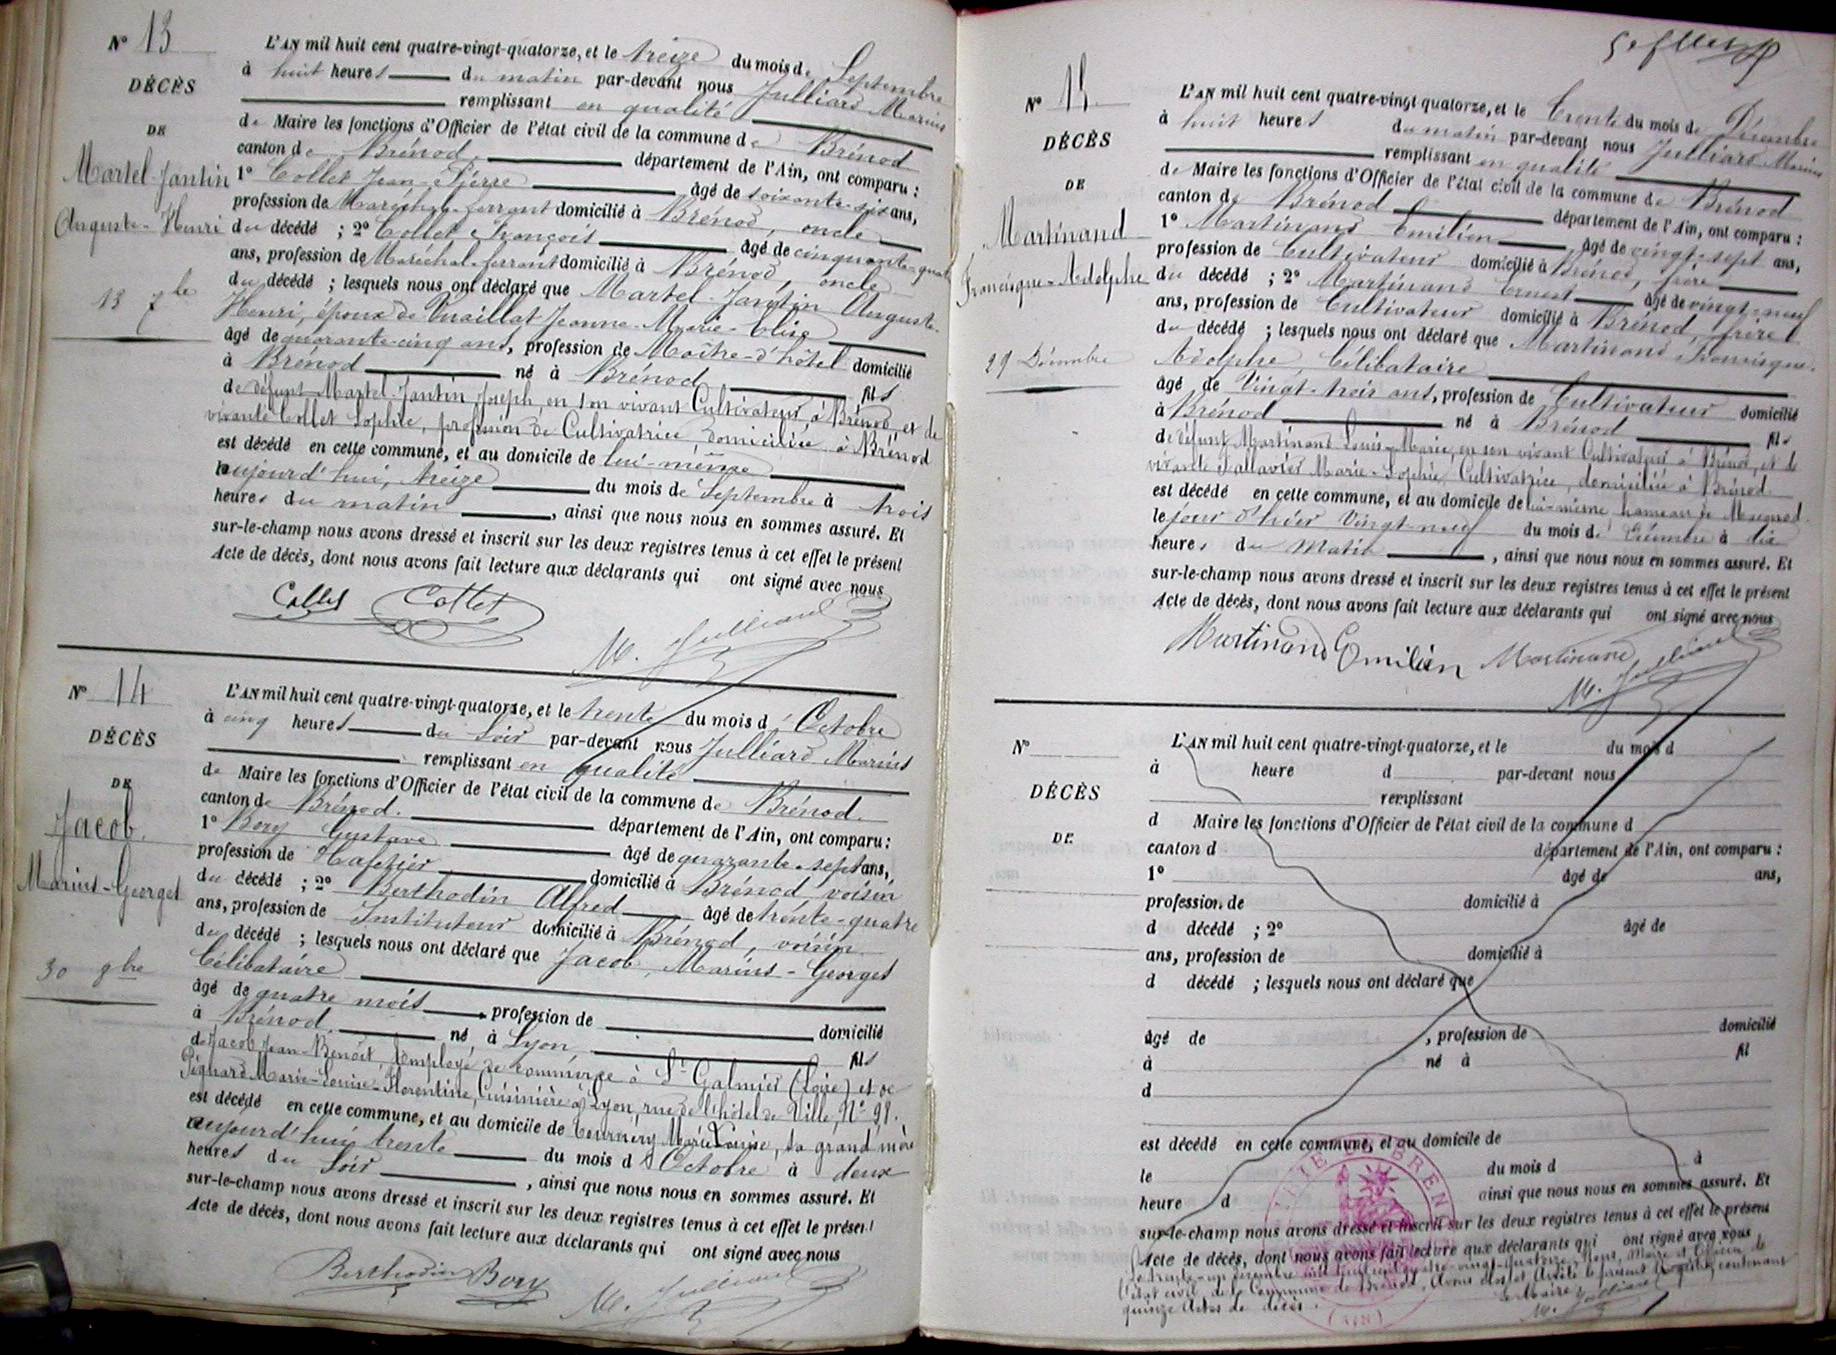 N° 13
DÉCÈS
DE
Martel-Jantin
Auguste-Henri
13 7bre
L'AN mil huit cent quatre-vingt-quatorze, et le treize du mois de Septembre
à huit heures du matin par-devant nous Julliard Marius
remplissant en qualité
de Maire les fonctions d'Officier de l'état civil de la commune de Brénod
canton de Brénod département de l'Ain, ont comparu :
1° Collet Jean-Pierre âgé de soixante-six ans,
profession de Maréchal-ferrant domicilié à Brénod, oncle
du décédé ; 2° Collet François âgé de cinquante-quatre
ans, profession de Maréchal-ferrant domicilié à Brénod, oncle
du décédé ; lesquels nous ont déclaré que Martel-Jantin Auguste-
Henri, époux de Maillat Jeanne-Marie-Elise
âgé de quarante-cinq ans, profession de Maître-d'hôtel domicilié
à Brénod né à Brénod fils
de défunt Martel-Jantin Joseph, en son vivant Cultivateur à Brénod, et de
vivante Collet Sophie, profession de Cultivatrice, domiciliée à Brénod
est décédé en cette commune, et au domicile de lui-même
aujourd'hui, treize du mois de Septembre à trois
heures du matin, ainsi que nous nous en sommes assuré. Et
sur-le-champ nous avons dressé et inscrit sur les deux registres tenus à cet effet le présent
Acte de décès, dont nous avons fait lecture aux déclarants qui ont signé avec nous
Collet Collet
M. Julliard
N° 14
DÉCÈS
DE
Jacob
Marius-Georges
30 8bre
L'AN mil huit cent quatre-vingt-quatorze, et le trente du mois d'Octobre
à cinq heures du soir par-devant nous Julliard Marius
remplissant en qualité
de Maire les fonctions d'Officier de l'état civil de la commune de Brénod
canton de Brénod. département de l'Ain, ont comparu :
1° Bory Gustave âgé de quarante-sept ans,
profession de Cafetier domicilié à Brénod voisin
du décédé ; 2° Berthodin Alfred âgé de trente-quatre
ans, profession de Instituteur domicilié à Brénod, voisin
du décédé ; lesquels nous ont déclaré que Jacob, Marius-Georges
Célibataire
âgé de quatre mois, profession de domicilié
à Brénod. né à Lyon fils
de Jacob Jean-Benoît, Employé de commerce à St Galmier (Loire) et de
Marie-Louise-Florentine, Cuisinière à Lyon, rue de l'hôtel de Ville, N° 98.
est décédé en cette commune, et au domicile de Marie Louise, sa grand'mère
aujourd'hui trente du mois d'Octobre à deux
heures du soir, ainsi que nous nous en sommes assuré. Et
sur-le-champ nous avons dressé et inscrit sur les deux registres tenus à cet effet le présent
Acte de décès, dont nous avons fait lecture aux déclarants qui ont signé avec nous
Berthodin Bory
M. Julliard
N° 15
DÉCÈS
DE
Martinand
Francisque-Adolphe
29 Décembre
L'AN mil huit cent quatre-vingt-quatorze, et le trente du mois de Décembre
à huit heures du matin par-devant nous Julliard Marius
remplissant en qualité
de Maire les fonctions d'Officier de l'état civil de la commune de Brénod
canton de Brénod département de l'Ain, ont comparu :
1° Martinand Emilien âgé de vingt-sept ans,
profession de Cultivateur domicilié à Brénod, frère
du décédé ; 2° Martinand Ernest âgé de vingt-neuf
ans, profession de Cultivateur domicilié à Brénod, frère
du décédé ; lesquels nous ont déclaré que Martinand Francisque-
Adolphe Célibataire
âgé de Vingt-trois ans, profession de Cultivateur domicilié
à Brénod né à Brénod fils
de défunt Martinand Louis-Marie, en son vivant Cultivateur à Brénod, et de
vivante Marie-Sophie, Cultivatrice, domiciliée à Brénod.
est décédé en cette commune, et au domicile de lui-même hameau de
le jour d'hier Vingt-neuf du mois de Décembre à dix
heures du Matin, ainsi que nous nous en sommes assuré. Et
sur-le-champ nous avons dressé et inscrit sur les deux registres tenus à cet effet le présent
Acte de décès, dont nous avons fait lecture aux déclarants qui ont signé avec nous
Martinand Emilien Martinand
M. Julliard
N°
DÉCÈS
DE
L'AN mil huit cent quatre-vingt-quatorze, et le du mois d
à heure d par-devant nous
remplissant
d Maire les fonctions d'Officier de l'état civil de la commune d
canton d département de l'Ain, ont comparu :
1° âgé de ans,
profession de domicilié à
d décédé ; 2° âgé de
ans, profession de domicilié à
d décédé ; lesquels nous ont déclaré que
âgé de , profession de domicilié
à né à fil
d
est décédé en cette commune, et au domicile de
le du mois d à
heure d ainsi que nous nous en sommes assuré. Et
sur-le-champ nous avons dressé et inscrit sur les deux registres tenus à cet effet le présent
Acte de décès, dont nous avons fait lecture aux déclarants qui ont signé avec nous
Le trente-un Décembre mil huit cent quatre-vingt-quatorze, Nous, Maire et Officier de
l'état civil de la Commune de Brénod, avons clos et arrêté le présent Registre, contenant
quinze Actes de décès.
Le Maire
M. Julliard
(AIN)